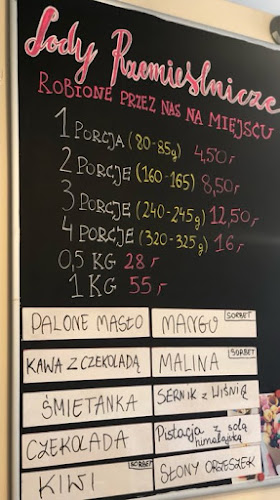 Lody Rzemieślnicze
ROBIONE PRZEZ NAS NA MIEJSCU
1 PORCJA (80-85g) 4,50,-
2 PORCJE (160-165) 8,50,-
3 PORCJE (240-245g) 12,50,-
4 PORCJE (320-325g) 16,-
0,5 KG 28,-
1 KG 55,-
PALONE MASŁO
MANGO SORBET
KAWA Z CZEKOLADĄ
MALINA SORBET
ŚMIETANKA
SERNIK z WIŚNIĄ
CZEKOLADA
Pistacja z solą
himalajską
KIWI SORBET
SŁONY ORZESZEK